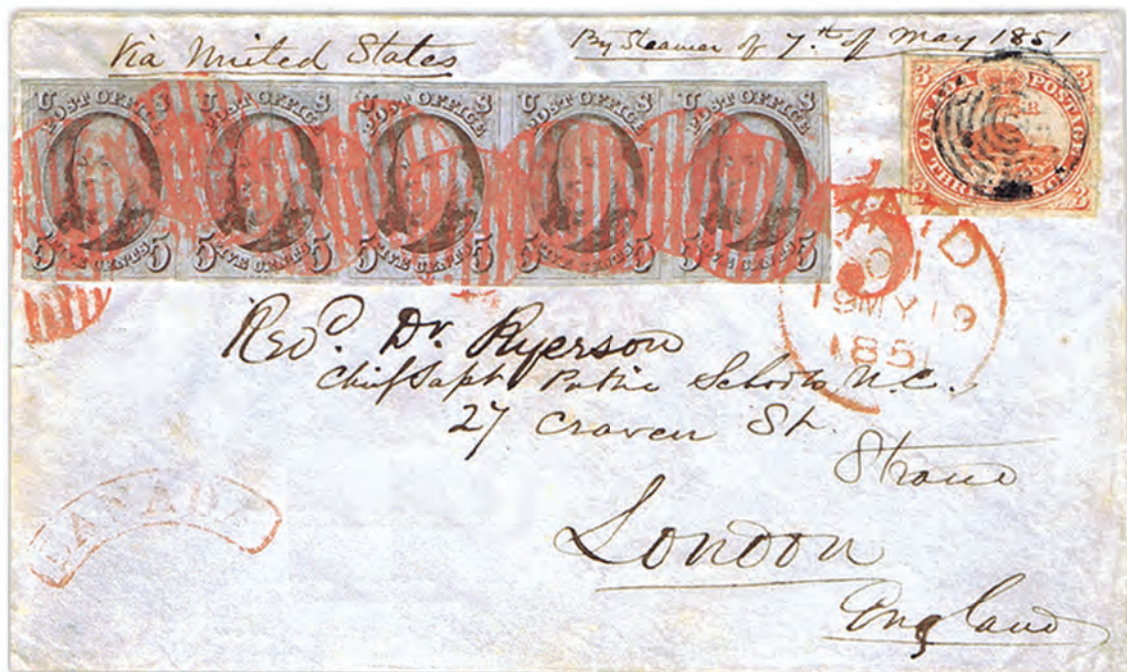 Via United States
By Steamer of 7th of May 1851
U S
POST OFFICE
5 FIVE CENTS 5
U S
POST OFFICE
5 FIVE CENTS 5
U S
POST OFFICE
5 FIVE CENTS 5
U S
POST OFFICE
5 FIVE CENTS 5
U S
POST OFFICE
5 FIVE CENTS 5
3 3
CANADA POSTAGE
THREE PENCE
3 3
PAID
19 MY 19
1851
Revd. Dr. Ryerson
Chief Supt Public Schools U.C.
27 Craven St.
Strand
CANADA
London
England